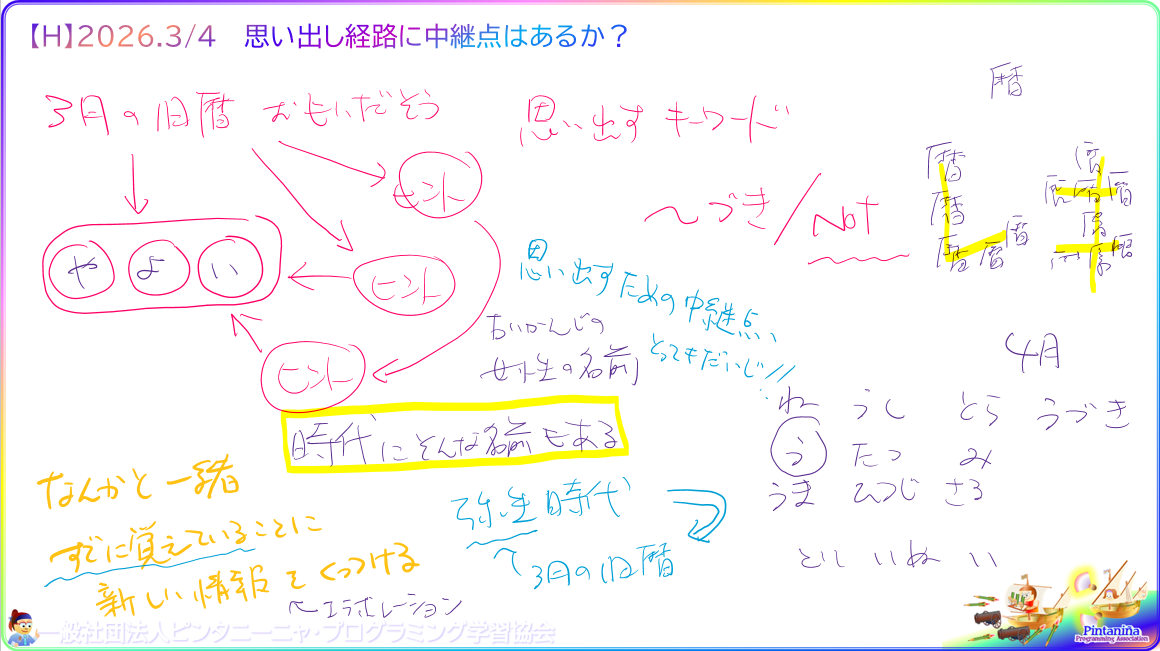 【H】2026.3/4 思い出し経路に中継点はあるか？
3月の旧暦 おもいだそう
思い出す キーワード
暦
ヒント
〜づき/Not
暦
暦
暦 暦 暦
や よ い
ヒント
思い出すための中継点、
とってもだいじ!!
古いかんじの
女性の名前
ヒント
時代にそんな名前もある
4月
ね うし とら うづき
う たつ み
うま ひつじ さる
とり いぬ い
なんかと一緒
すでに覚えていることに
新しい情報をくっつける
〜エラボレーション
弥生時代
〜3月の旧暦
一般社団法人ピンタニーニャ・プログラミング学習協会
Pintaniña
Programming Association